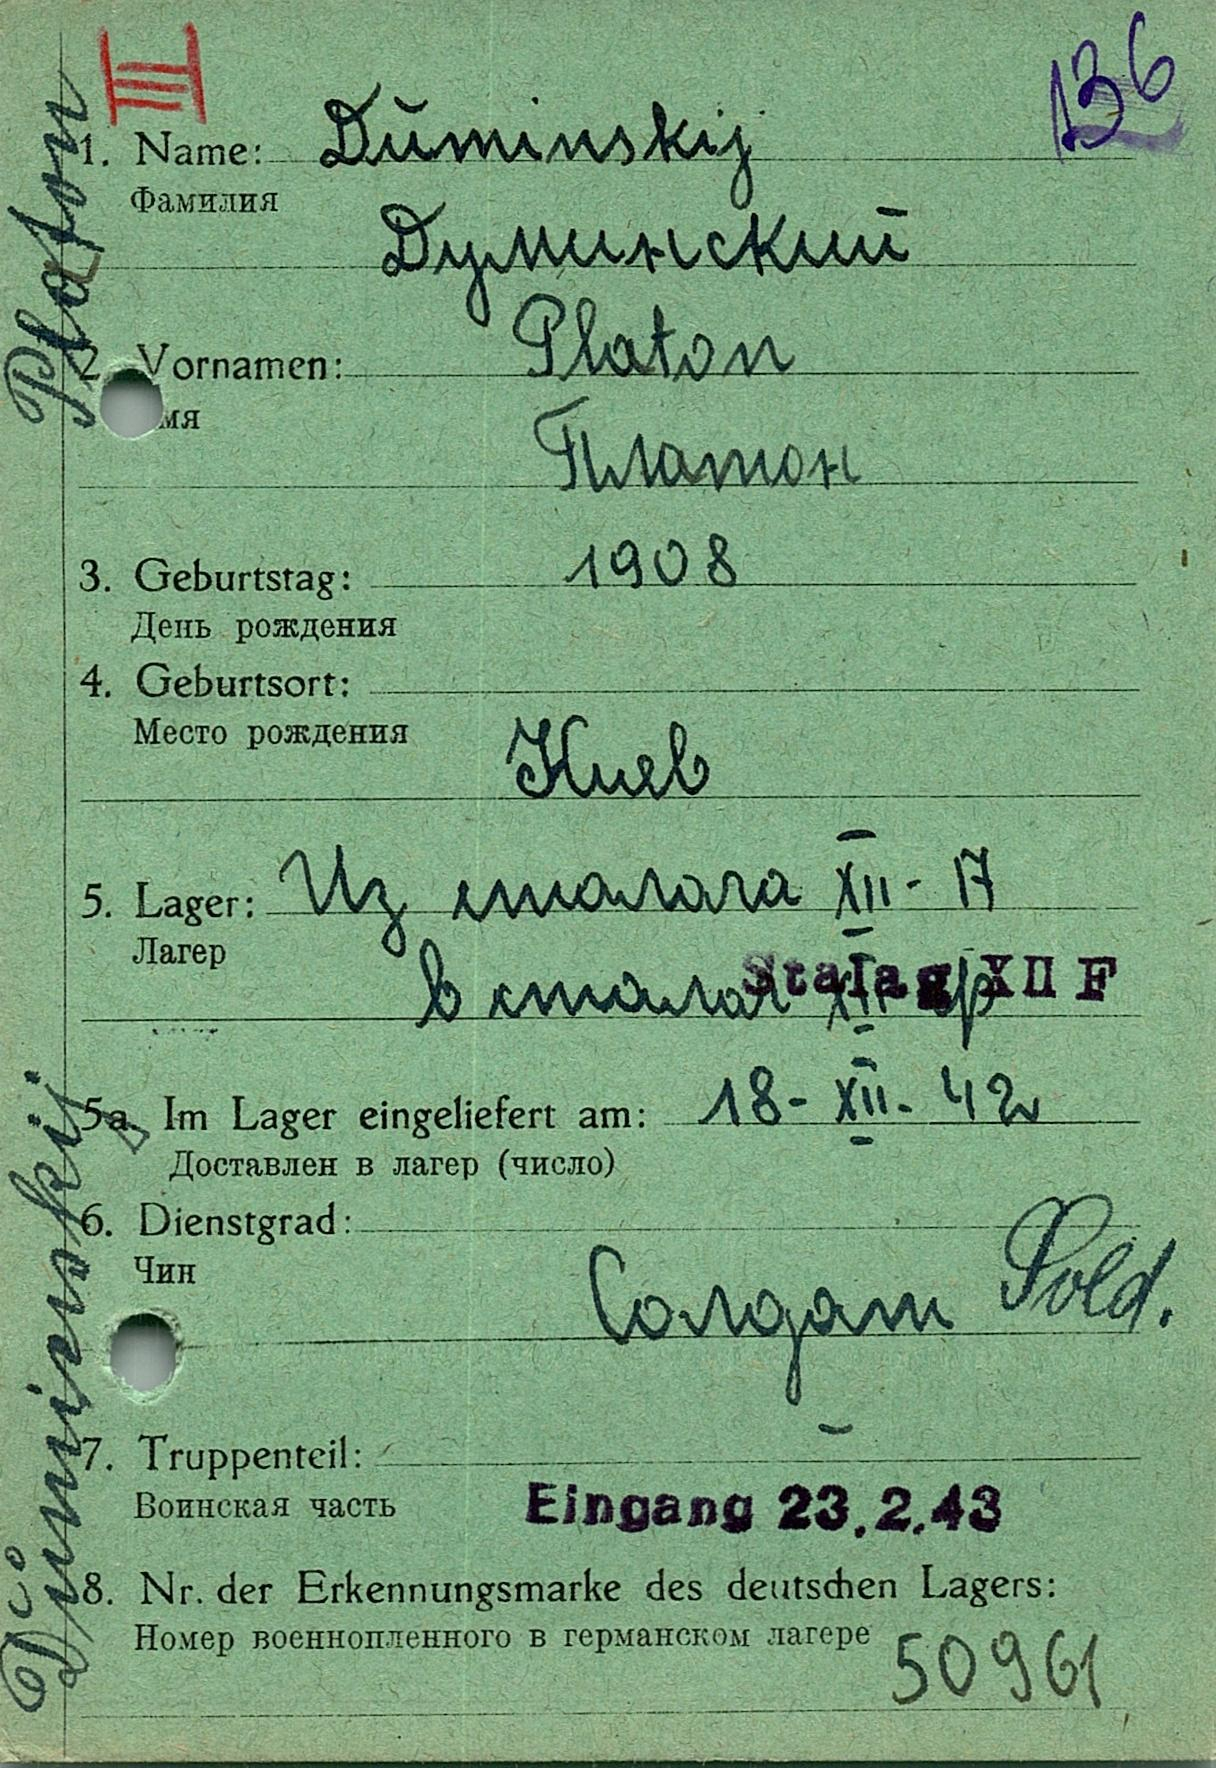 III
136
1. Name: Dŭminskij
Фамилия
Думинский
2. Vornamen: Platon
мя
Платон
3. Geburtstag: 1908
День рождения
4. Geburtsort:
Место рождения
Киев
5. Lager: Из сталага XII - 17
Лагер
В сталаг XII ф
Stalag XII F
5a. Im Lager eingeliefert am: 18 - XII - 42
Доставлен в лагер (число)
6. Dienstgrad:
Чин
Солдат Sold.
7. Truppenteil: -
Воинская часть
Eingang 23.2.43
8. Nr. der Erkennungsmarke des deutschen Lagers:
Номер военнопленного в германском лагере
50961
Dŭminskij Platon